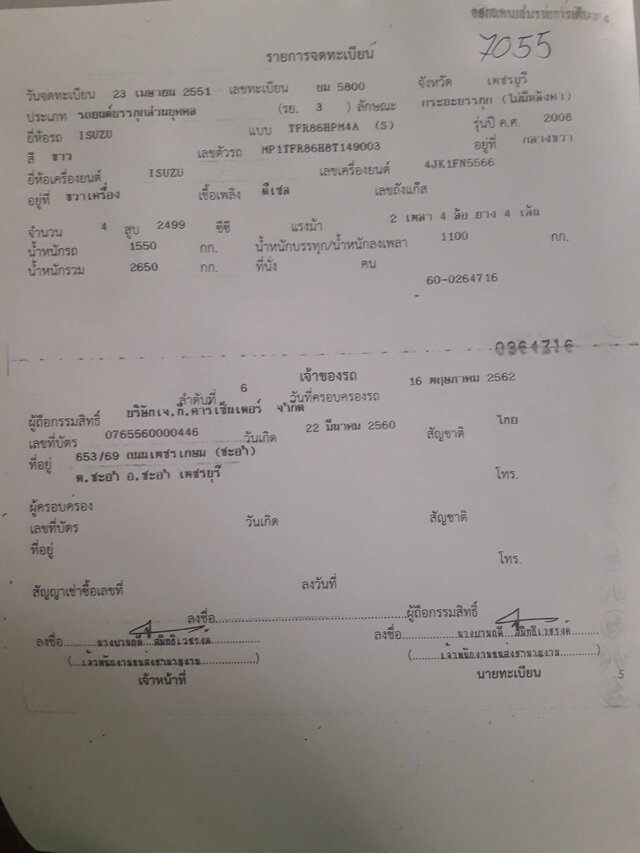 ออกแทนเล่มรายการเดิม 4
7055
รายการจดทะเบียน
วันจดทะเบียน 23 เมษายน 2551 เลขทะเบียน ยม 5800 จังหวัด เพชรบุรี
ประเภท รถยนต์บรรทุกส่วนบุคคล (รย. 3 ) ลักษณะ กระบะบรรทุก (ไม่มีหลังคา)
ยี่ห้อรถ ISUZU แบบ TFR86HPM4A (S) รุ่นปี ค.ศ. 2008
สี ขาว เลขตัวรถ MP1TFR86H8T149003 อยู่ที่ กลางขวา
ยี่ห้อเครื่องยนต์ ISUZU เลขเครื่องยนต์ 4JK1FN5566
อยู่ที่ ขวาเครื่อง เชื้อเพลิง ดีเซล เลขถังแก๊ส
จำนวน 4 สูบ 2499 ซีซี แรงม้า 2 เพลา 4 ล้อ ยาง 4 เส้น
น้ำหนักรถ 1550 กก. น้ำหนักบรรทุก/น้ำหนักลงเพลา 1100 กก.
น้ำหนักรวม 2650 กก. ที่นั่ง คน
60-0264716
0364716
เจ้าของรถ
ลำดับที่ 6 วันที่ครอบครองรถ 16 พฤษภาคม 2562
ผู้ถือกรรมสิทธิ์ บริษัทเจ.ที.คาร์เซ็นเตอร์ จำกัด
เลขที่บัตร 0765560000446 วันเกิด 22 มีนาคม 2560 สัญชาติ ไทย
ที่อยู่ 653/69 ถนนเพชรเกษม (ชะอำ)
ต.ชะอำ อ.ชะอำ เพชรบุรี โทร.
ผู้ครอบครอง
เลขที่บัตร วันเกิด สัญชาติ
ที่อยู่
โทร.
สัญญาเช่าซื้อเลขที่ ลงวันที่
ลงชื่อ ผู้ถือกรรมสิทธิ์
ลงชื่อ ลงชื่อ
(เจ้าพนักงานขนส่งชำนาญงาน) (เจ้าพนักงานขนส่งชำนาญงาน)
เจ้าหน้าที่ นายทะเบียน
5